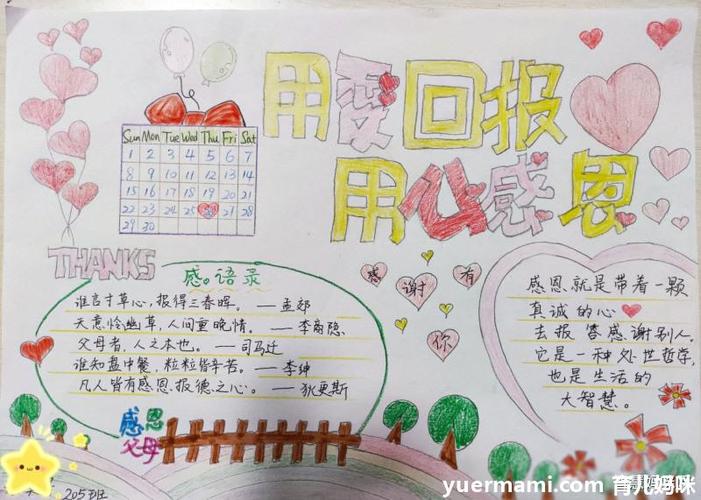 用愛回报
用心感恩
Sun Mon Tue Wed Thu Fri Sat
1 2 3 4 5 6 7
8 9 10 11 12 13 14
15 16 17 18 19 20 21
22 23 24 25 26 27 28
29 30
THANKS
感。语录
谁言寸草心，报得三春晖。—孟郊
天意怜幽草，人间重晚情。—李商隐
父母者，人之本也。—司马迁
谁知盘中餐，粒粒皆辛苦。—李绅
凡人皆有感恩报德之心。—狄更斯
感谢有你
感恩就是带着一颗
真诚的心
去报答感谢别人。
它是一种处世哲学，
也是生活的
大智慧。
感恩
父母
205班
yuermami.com 育儿妈咪